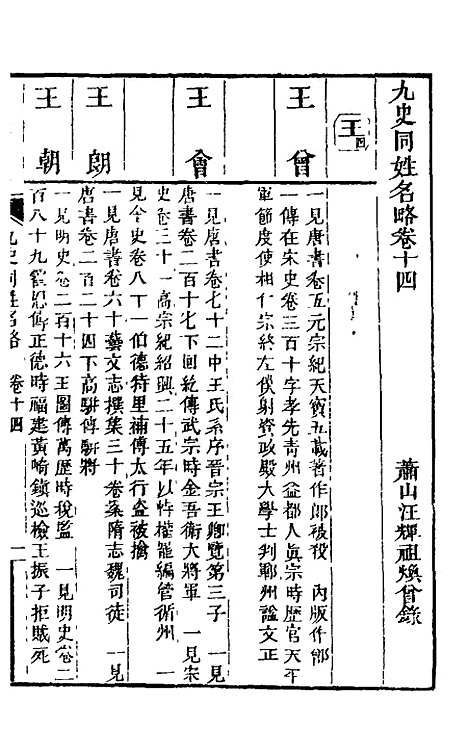 九史同姓名略卷十四
蕭山汪輝祖煥曾錄
王四
王曾
一見唐書卷五元宗紀天寶五載著作郎被殺 內版作郎
一傳在宋史卷三百十字孝先青州益都人眞宗時歷官天平
軍節度使相仁宗終左僕射資政殿大學士判鄆州諡文正
王會
一見唐書卷七十二中王氏系序晉宗王卿覽第三子 一見
唐書卷二百十七下回紇傳武宗時金吾衛大將軍 一見宋
史卷三十一高宗紀紹興二十五年以恃權罷編管循州 一
見金史卷八十一伯德特里補傳太行盜被擒
王朗
一見唐書卷六十藝文志撰集三十卷案隋志魏司徒 一見
唐書卷二百二十四下高駢傳駢將
王朝
一見明史卷二百十六王圖傳萬歷時稅監 一見明史卷二
百八十九 傳正德時福建黃崎鎮巡檢王振子拒賊死
九史同姓名略 卷十四 一